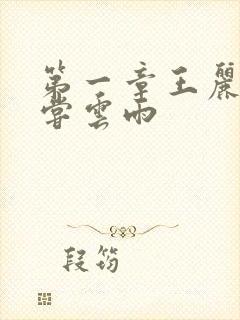 第一章王麗
嘗雲雨
段筠